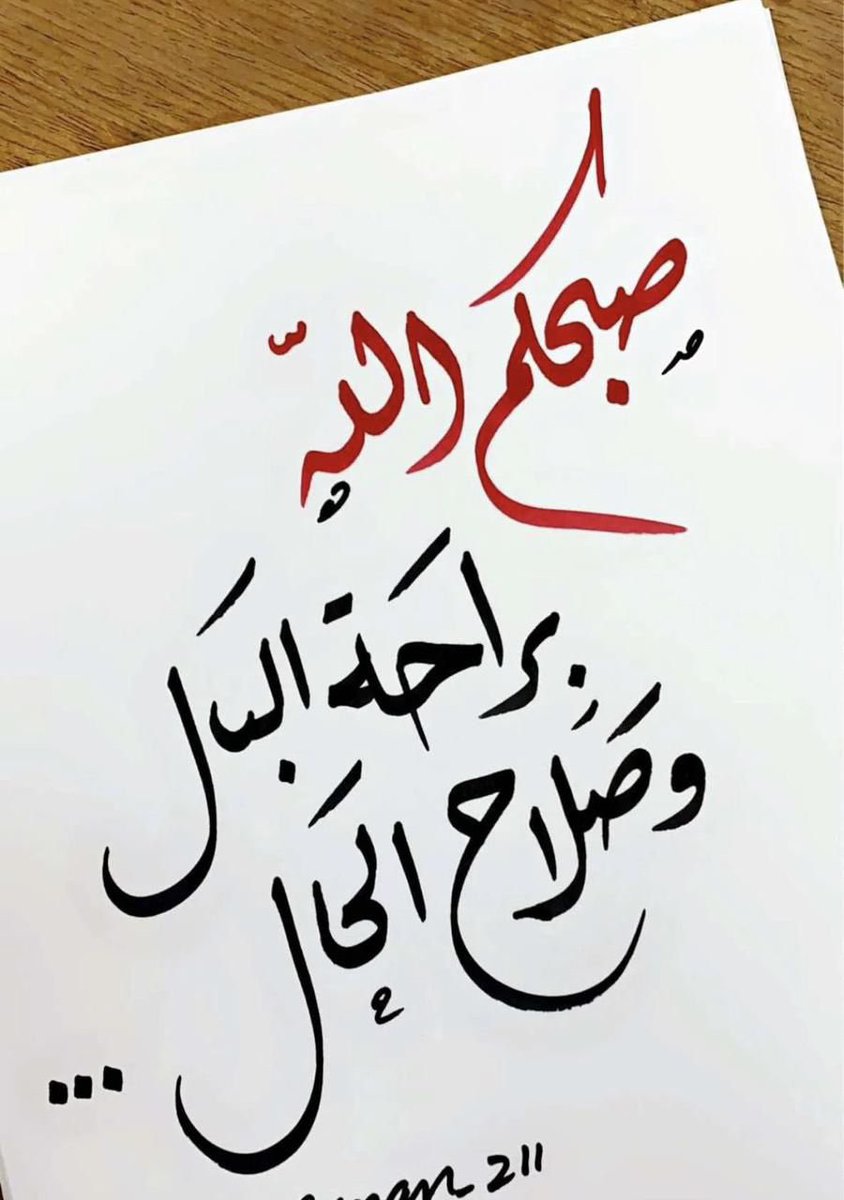 صبحكم اللّه
براحَة البَال
وصَلاح الحَال ...
211